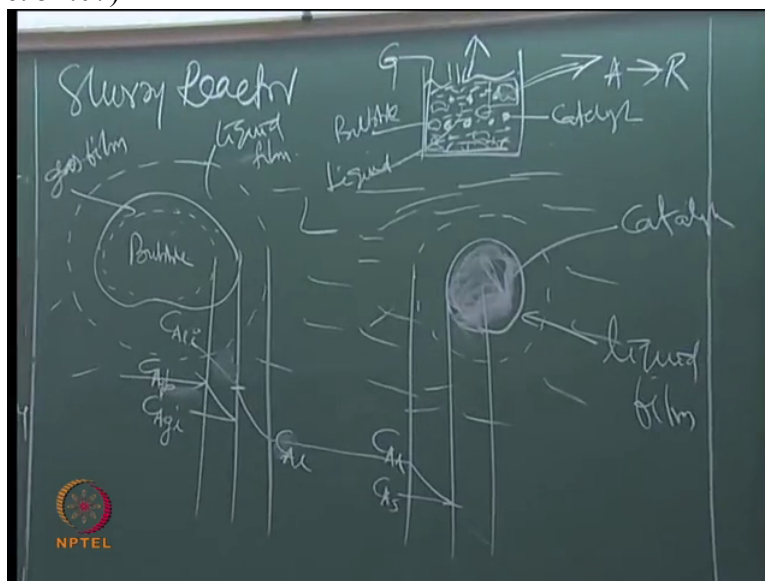 Slurry Reactor
G
A → R
Bubble
Catalyst
Liquid
gas film
liquid film
L
Bubble
Catalyst
liquid film
C_Ali
C_Ab
C_Agi
C_Al
C_Al
C_As
NPTEL